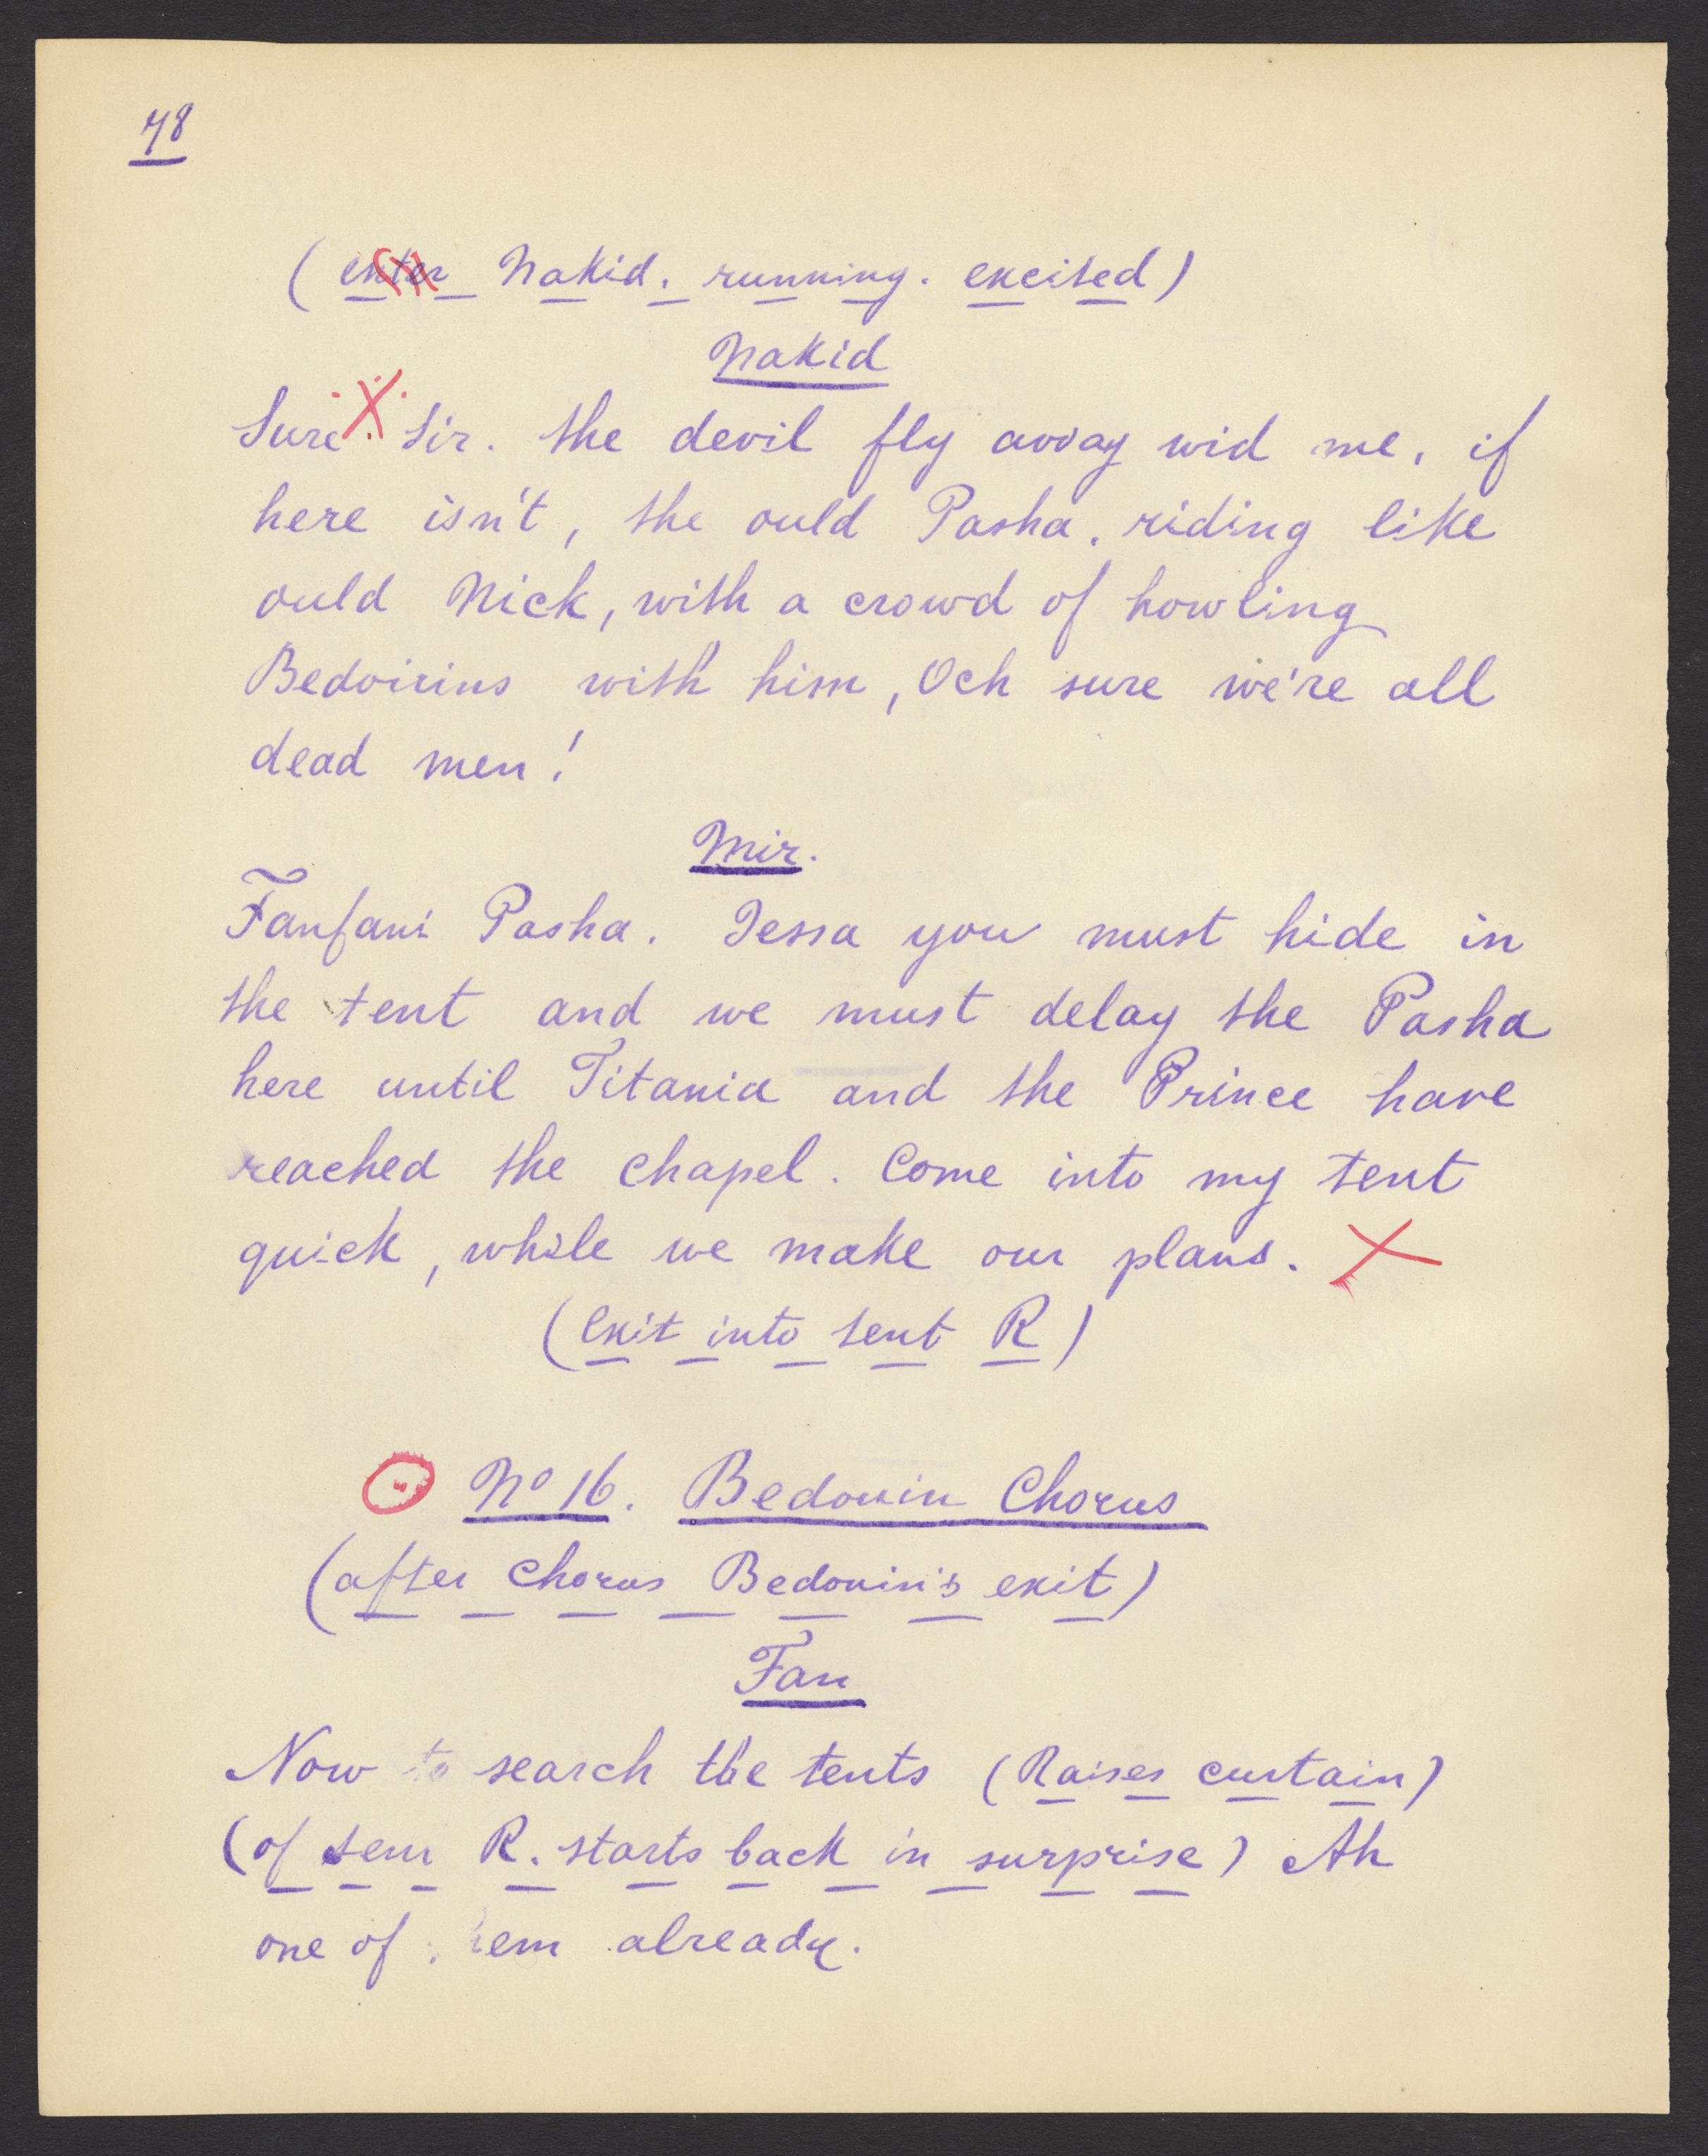 48
(enter Nakid. running. excited)
Nakid
Sure. Sir. the devil fly away wid me, if
here isn't, the ould Pasha. riding like
ould Nick, with a crowd of howling
Bedouins with him, Och sure we're all
dead men!
Mir.
Fanfani Pasha. Tessa you must hide in
the tent and we must delay the Pasha
here until Titania and the Prince have
reached the chapel. Come into my tent
quick, while we make our plans. X
(Exit into tent R)
No 16. Bedouin Chorus
(after Chorus Bedouin's exit)
Fan
Now to search the tents (Raises curtain)
(of tent R. starts back in surprise) Ah
one of them already.